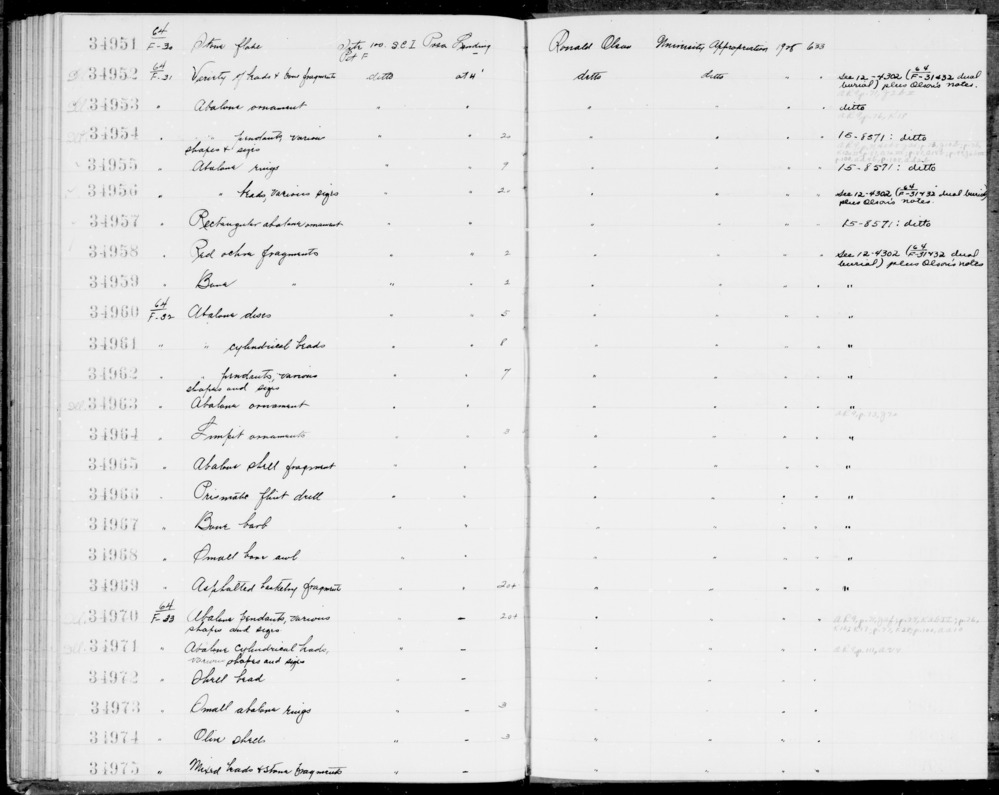 34951 64/F-30 Stone flake 100. S.C.I. Ronald Olson University Appropriation 1928 633
34952 64/F-31 Variety of beads & bone fragments ditto at 4' ditto ditto " " see 12-4302 (64/F-31&32 dual
burial) plus Olson's notes.
34953 " Abalone ornament " " " " " " ditto
34954 " " pendants, various " " 20 " " " " 15-8571: ditto
shapes & sizes
34955 " Abalone rings " " 9 " " " " 15-8571: ditto
34956 " " beads, various sizes " " 20 " " " " see 12-4302 (64/F-31&32 dual burial)
plus Olson's notes.
34957 " Rectangular abalone ornament " " " " " " 15-8571: ditto
34958 " Red ochre fragments " " 2 " " " " see 12-4302 (64/F-31&32 dual
burial) plus Olson's notes
34959 " Bone " " " 2 " " " " "
34960 64/F-32 Abalone discs " " 5 " " " " "
34961 " " cylindrical beads " " 8 " " " " "
34962 " " pendants, various " " 7 " " " " "
shapes and sizes
34963 " Abalone ornament " " " " " " "
34964 " Limpit ornaments " " 2 " " " " "
34965 " Abalone shell fragment " " " " " " "
34966 " Prismatic flint drill " " " " " " "
34967 " Bone barb " " " " " " "
34968 " Small bone awl " " " " " " "
34969 " Asphalted basketry fragment " " 20+ " " " " "
34970 64/F-33 Abalone pendants, various " - 20+ " " " "
shapes and sizes
34971 " Abalone cylindrical beads, " - " " " "
various shapes and sizes
34972 " Shell bead " - " " " "
34973 " Small abalone rings " - 3 " " " "
34974 " Olive shells " - 3 " " " "
34975 " Mixed beads & stone fragments " - " " " "